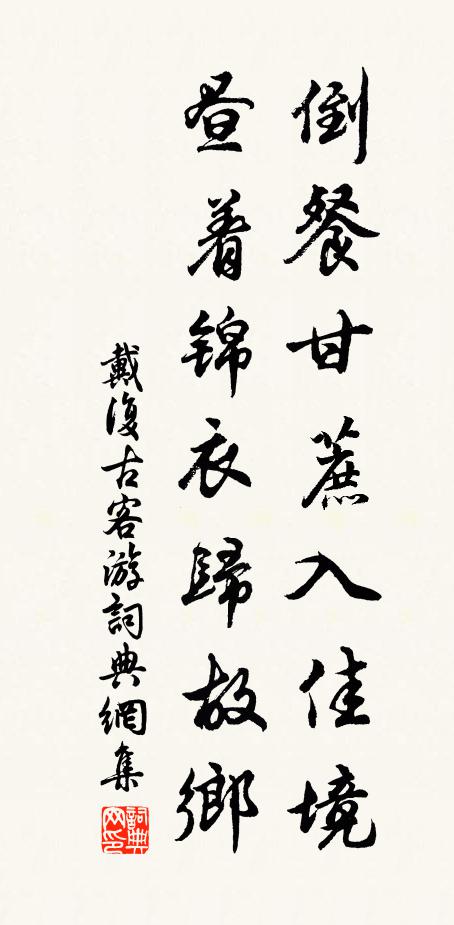 倒餐甘蔗入佳境
昼着锦衣歸故鄉
戴復古客游詞典網集
詞典网印